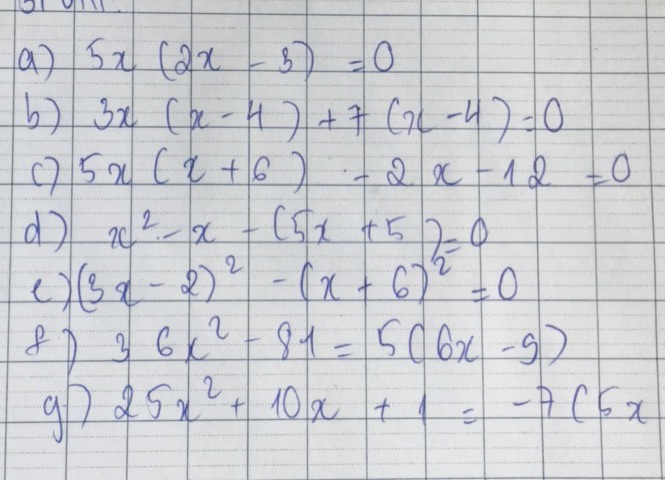 a) 5x (2x - 3) = 0
b) 3x (x - 4) + 7 (x - 4) = 0
c) 5x (x + 6) - 2x - 12 = 0
d) x² - x - (5x + 5) = 0
e) (3x - 2)² - (x + 6)² = 0
f) 36x² - 81 = 5(6x - 9)
g) 25x² + 10x + 1 = -7(5x